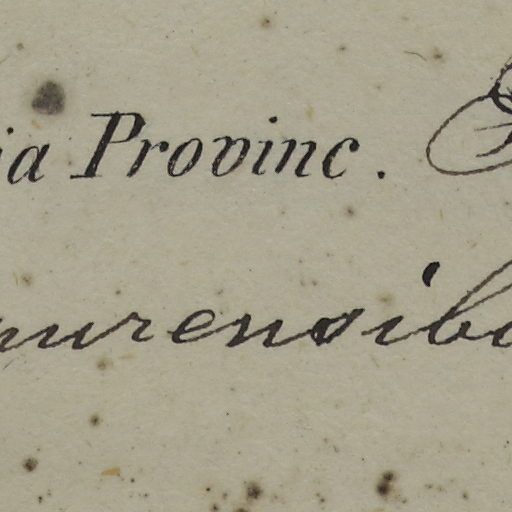 ia Provinc.
urensib